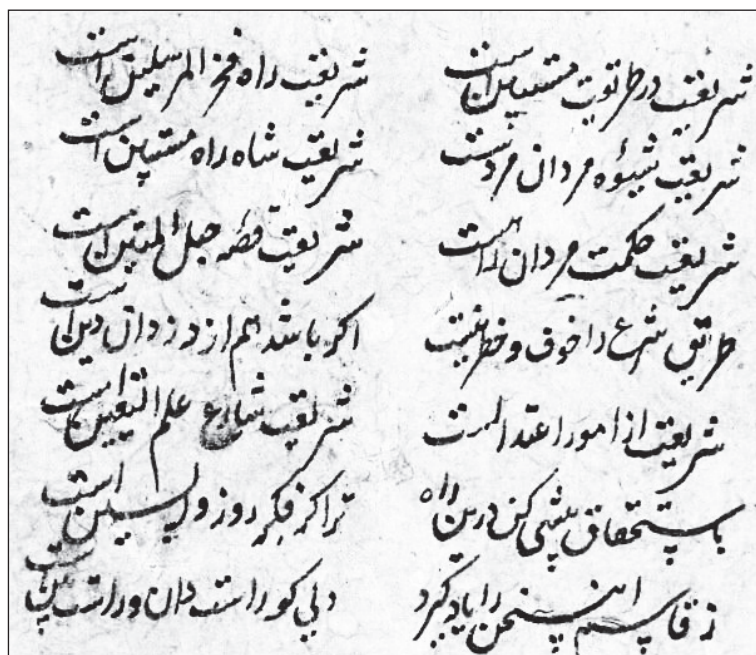 شریعت در طریقت مستبین است شریعت راه فخر المرسلین است
شریعت شیوه مردان مردست شریعت شاه راه مستبین است
شریعت حکمت مردان راهست شریعت قطه حبل المتین است
طریق شرع را خوف و خطر نیست اکر باشد هم از دزدان دین است
شریعت از امور اعتدالست شریعت شارع علم الیقین است
باستحقاق پیشی کن درین راه ترا کر فکر روز واپسین است
ز قاسم این سخن را یاد کیرد دلی کو راست دان و راست بین است